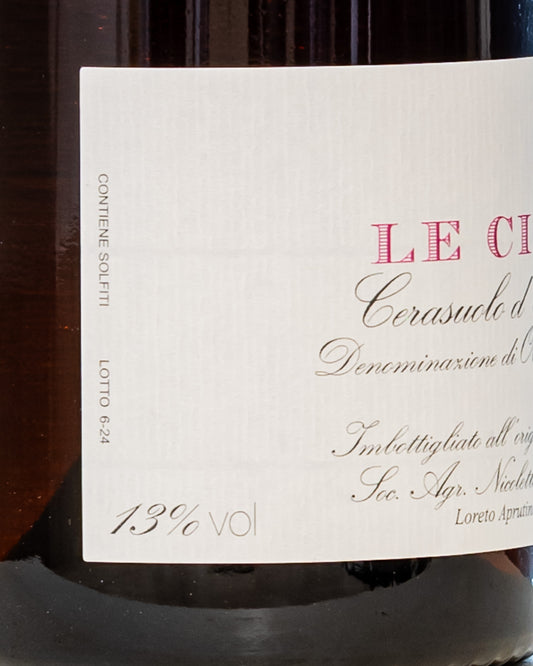 CONTIENE SOLFITI LOTTO 6-24
LE CI
Cerasuolo d
Denominazione di
Imbottigliato all'orig
Soc. Agr. Nicolett
Loreto Aprutin
13% vol